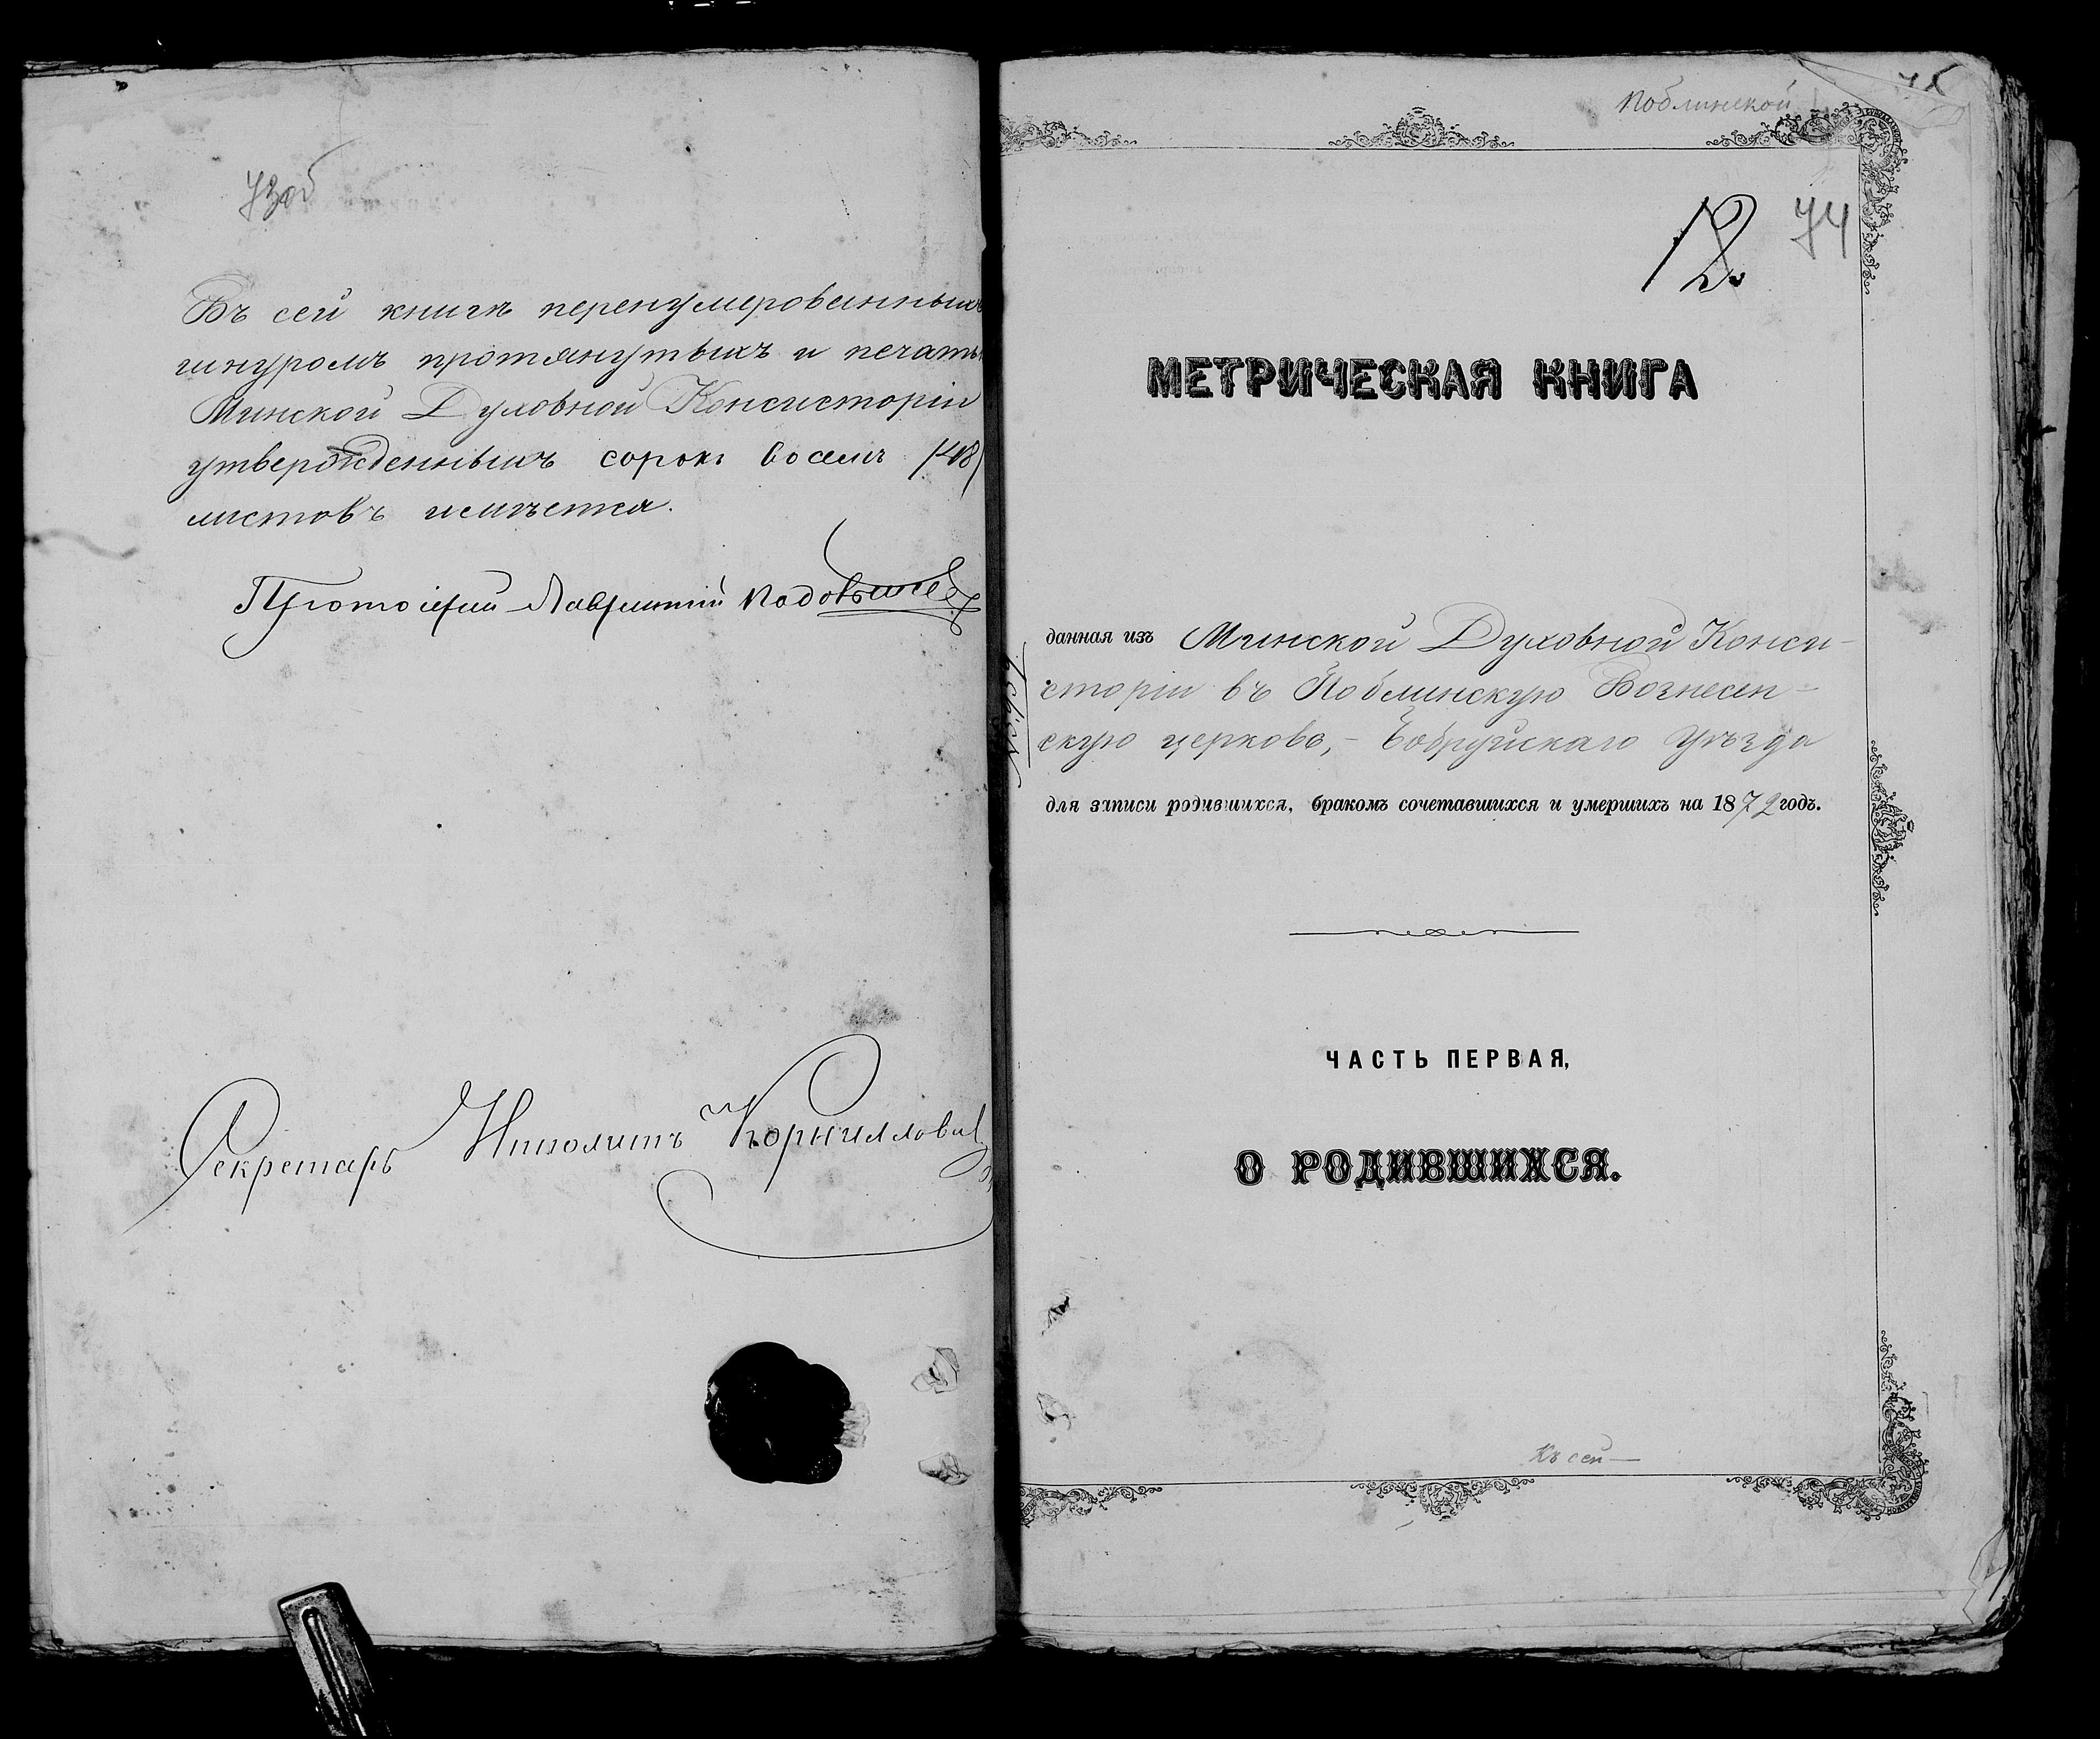 73об
Въ сей книгѣ перенумерованныхъ
шнуромъ протянутыхъ и печатью
Минской Духовной Консисторіи
утвержденныхъ сорокъ восемь (48)
листовъ имѣется.
Протоіерей Лаврентій
Секретарь Ипполитъ Корниллович
Поблинской
12. 74
МЕТРИЧЕСКАЯ КНИГА
данная изъ Минской Духовной Конси-
сторіи въ Поблинскую Вознесен-
скую церковь, – Бобруйскаго уѣзда
для записи родившихся, бракомъ сочетавшихся и умершихъ на 1872 годъ.
ЧАСТЬ ПЕРВАЯ,
О РОДИВШИХСЯ.
Къ сей —